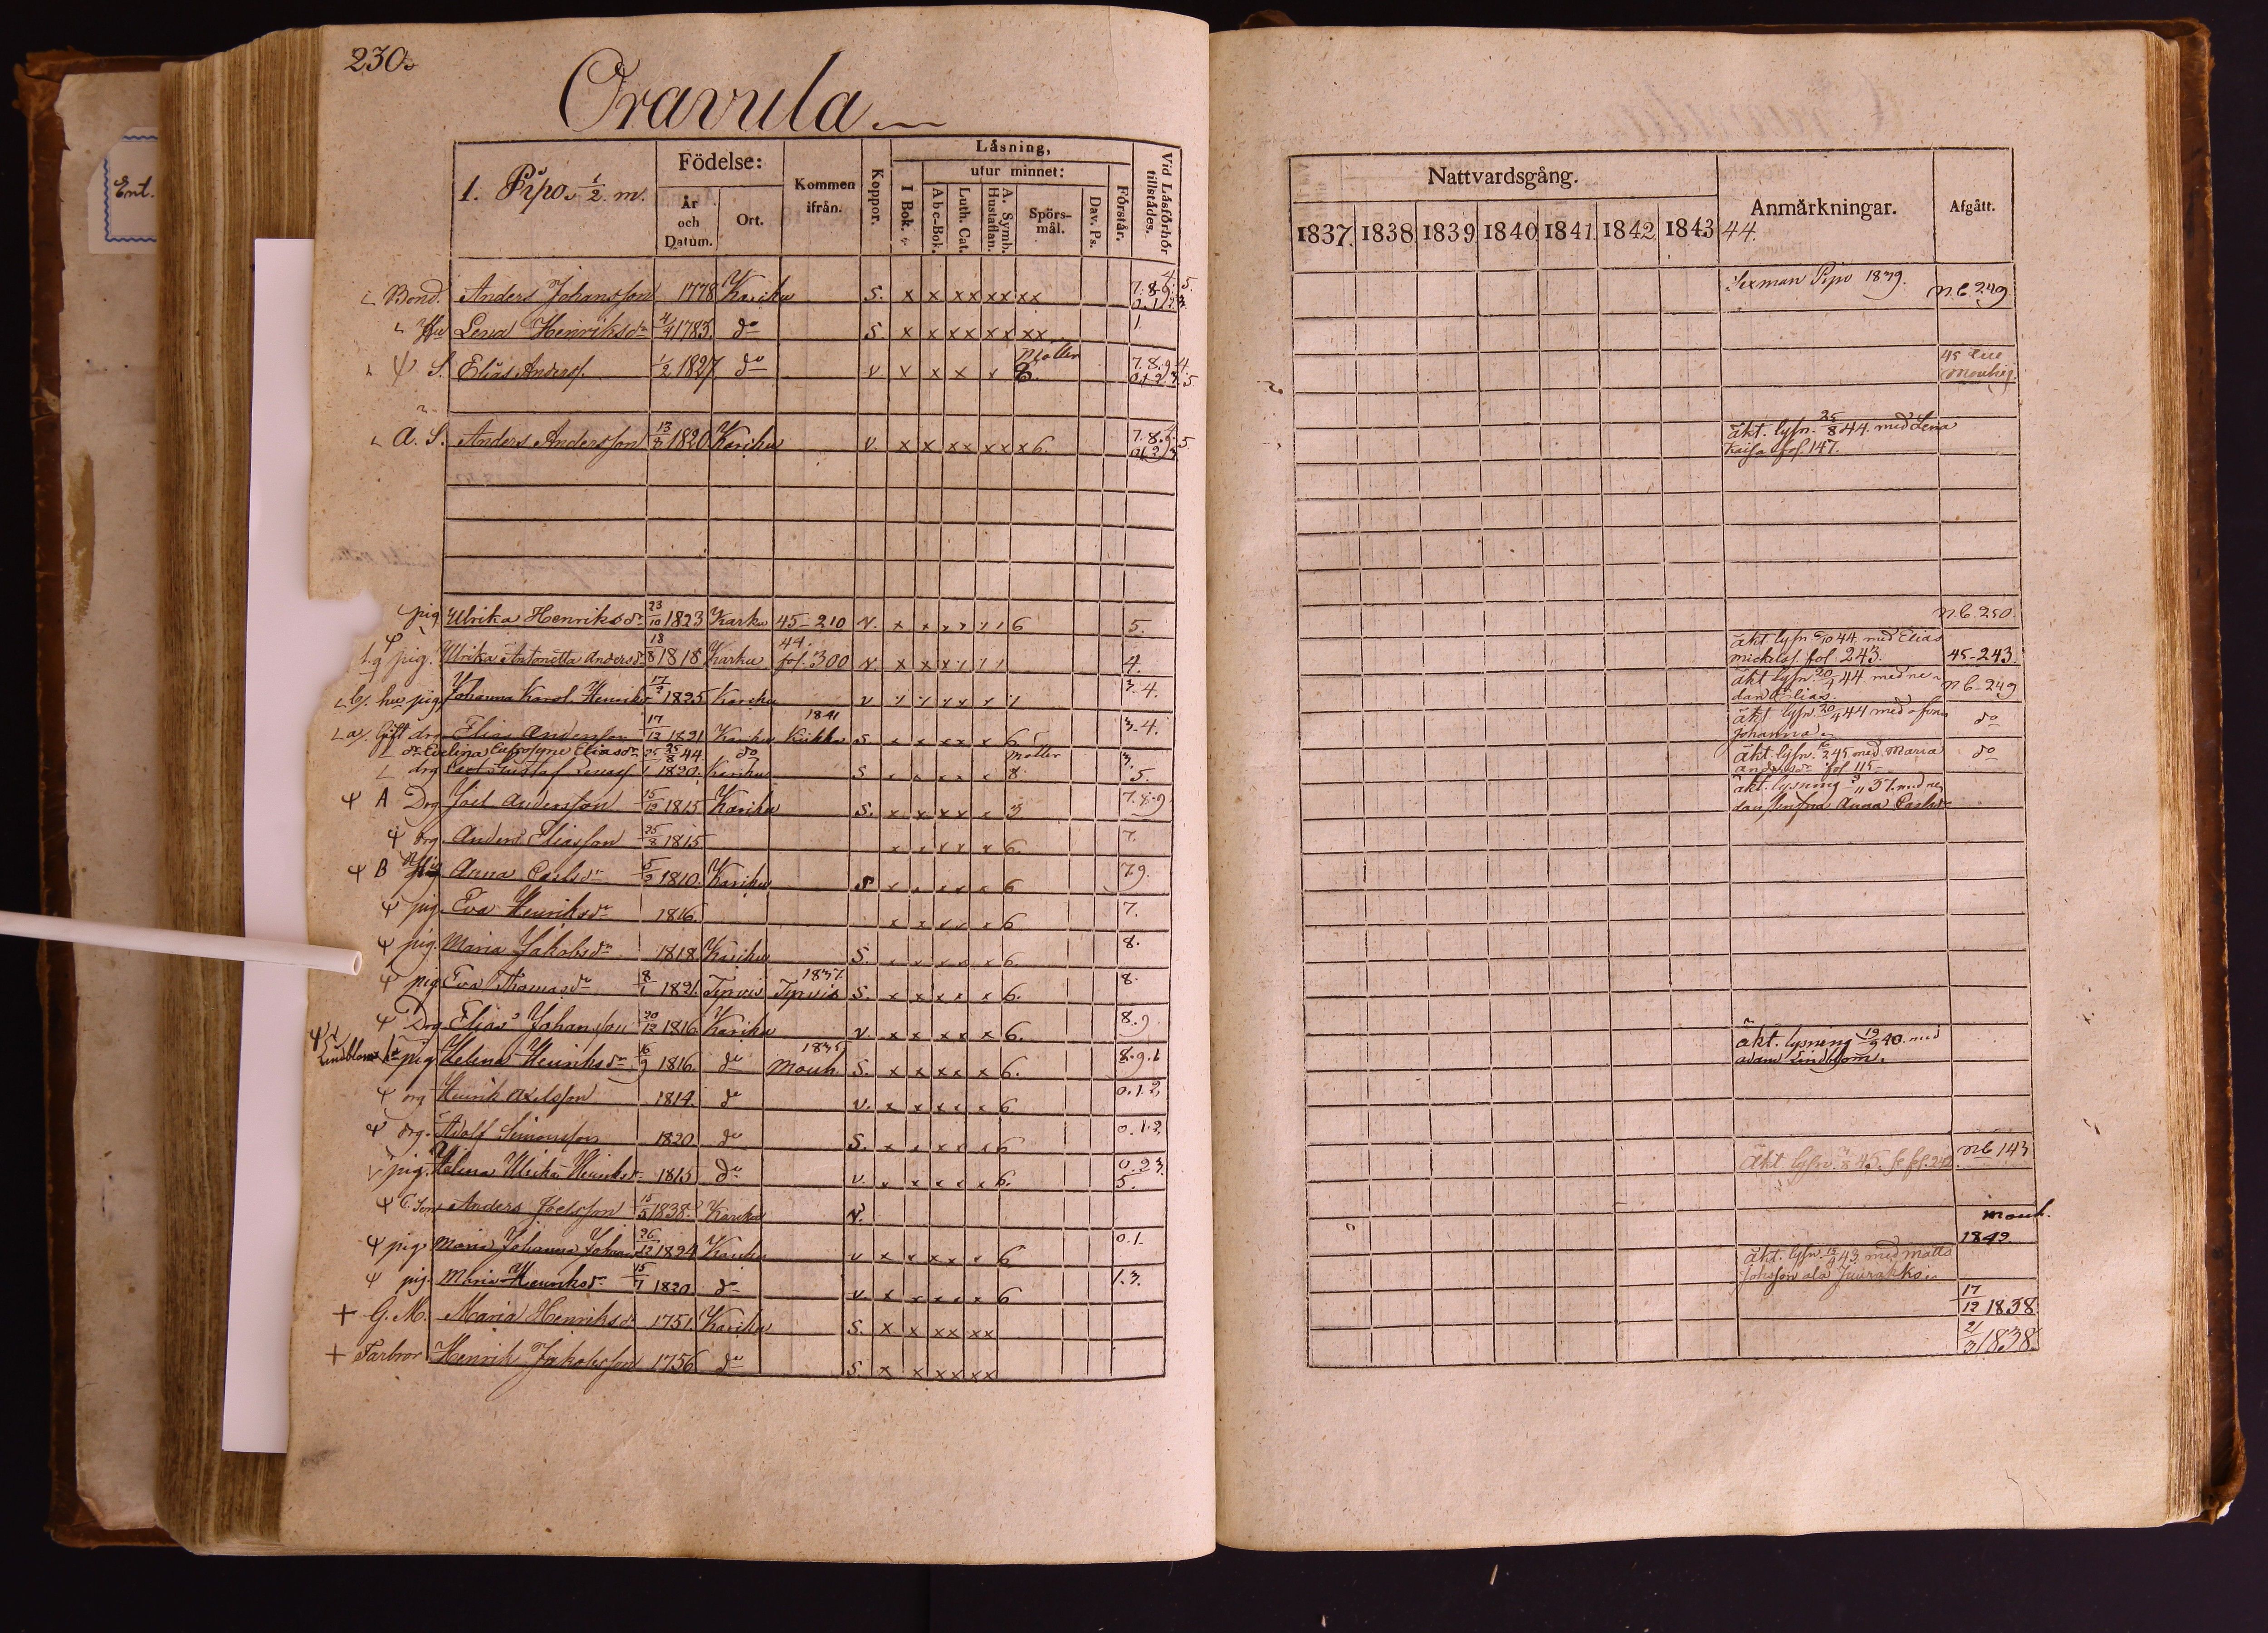 230.
Oravula
Ent.
1. Pipo. 1/2 m.
Födelse:
År och Datum.
Ort.
Kommen ifrån.
Koppor.
Läsning,
I Bok.
utur minnet:
Abc-Bok.
Luth. Cat.
A. Symb. Hustaflan.
Spörsmål.
Dav. Ps.
Förstår.
Vid Läsförhör tillstådes.
Bond. Anders Johansson 1778 Kariku S. x x xx xx xx
Hu Lena Henriksdr 4/4 1783 do S. x x xx xx xx 1
S. Elias Anderss. 1/2 1827 do v
A. S. Anders Andersson 13/8 1820 Kariku v. x x xx xx x 6.
pig Ulrika Henriksdr 23/10 1823 Karku 45-210 v. 6 5.
pig. Ulrika Antonetta Andersdr 18/8 1818 Karku 44. fol. 300 v. 4.
pig Johanna Karol. Henriksdr 17/2 1825 Kariku v 3.4.
Gift drg Elias Andersson 17/12 1821 Kariku 1841 S 6 3.4.
dr Evelina Eufrosyne Eliasdr 25/8 44 do
drg Carl Gustaf 1820 Kariku S 8. 5.
A Drg Joel Andersson 15/12 1815 Kariku S. 3 7.8.9
drg Anders Eliasson 25/8 1815 6. 7.
B Anna Carlsdr 5/2 1810. Kariku S 6 7.9.
pig. Eva Henriksdr 1816. 6 7.
pig. Maria Jakobsdr 1818 Kariku S. 6. 8.
pig Eva Thomasdr 8/1 1821. 1837 S. 6. 8.
Drg Elias Johansson 20/12 1816 Kariku v 6. 8.9
Lindblom pig Helena Henriksdr 16/9 1816. do 1835 Mouh. S. 6. 8.9.1
drg Henrik Axelsson 1814. do v. 6 0.1.2,
drg. Adolf Simonsson 1820 do S. 6 0.1.2,
pig. Helena Ulrika Henriksdr 1815 do v. 6. 0.2 3. 5.
C. Son Anders Joelsson 15/5 1838. Kariku v.
pig. Maria Johanna 26/12 1824 Kariku v 6 0.1.
pig. Maria Henriksdr 15/7 1820. do v 6 1.3.
+ G. M. Maria Henriksdr 1751 Kariku S. x x xx xx
+ Farbror Henrik Jakobsson 1756 do S. x x xx xx
Nattvardsgång.
1837. 1838 1839 1840 1841 1842 1843 44.
Anmärkningar.
Afgått.
Sexman Pipo 1839. nb. 249
45
Mouhij.
äkt. lysn. 25/8 44. med Lena
Kaisa fol. 147.
nb. 250.
äkt. lysn. 6/10 44. med Elias
mickelss. fol. 243. 45-243.
äkt lysn. 20/4 44 med ne-
dan Elias. nb-249
äkt lysn. 20/4 44 med ofvan
Johanna. do
äkt lysn. 45 med Maria
Andersdr fol 115- do
äkt. lysning 37. med ne-
dan Anna Carlsdr
äkt. lysning 19/9 40. med
Adam Lindblom.
äkt lysn. 45. nb 143
Mouh. 1842.
äkt. lysn. 43 med Matts
17/12 1838
21/3 1838.